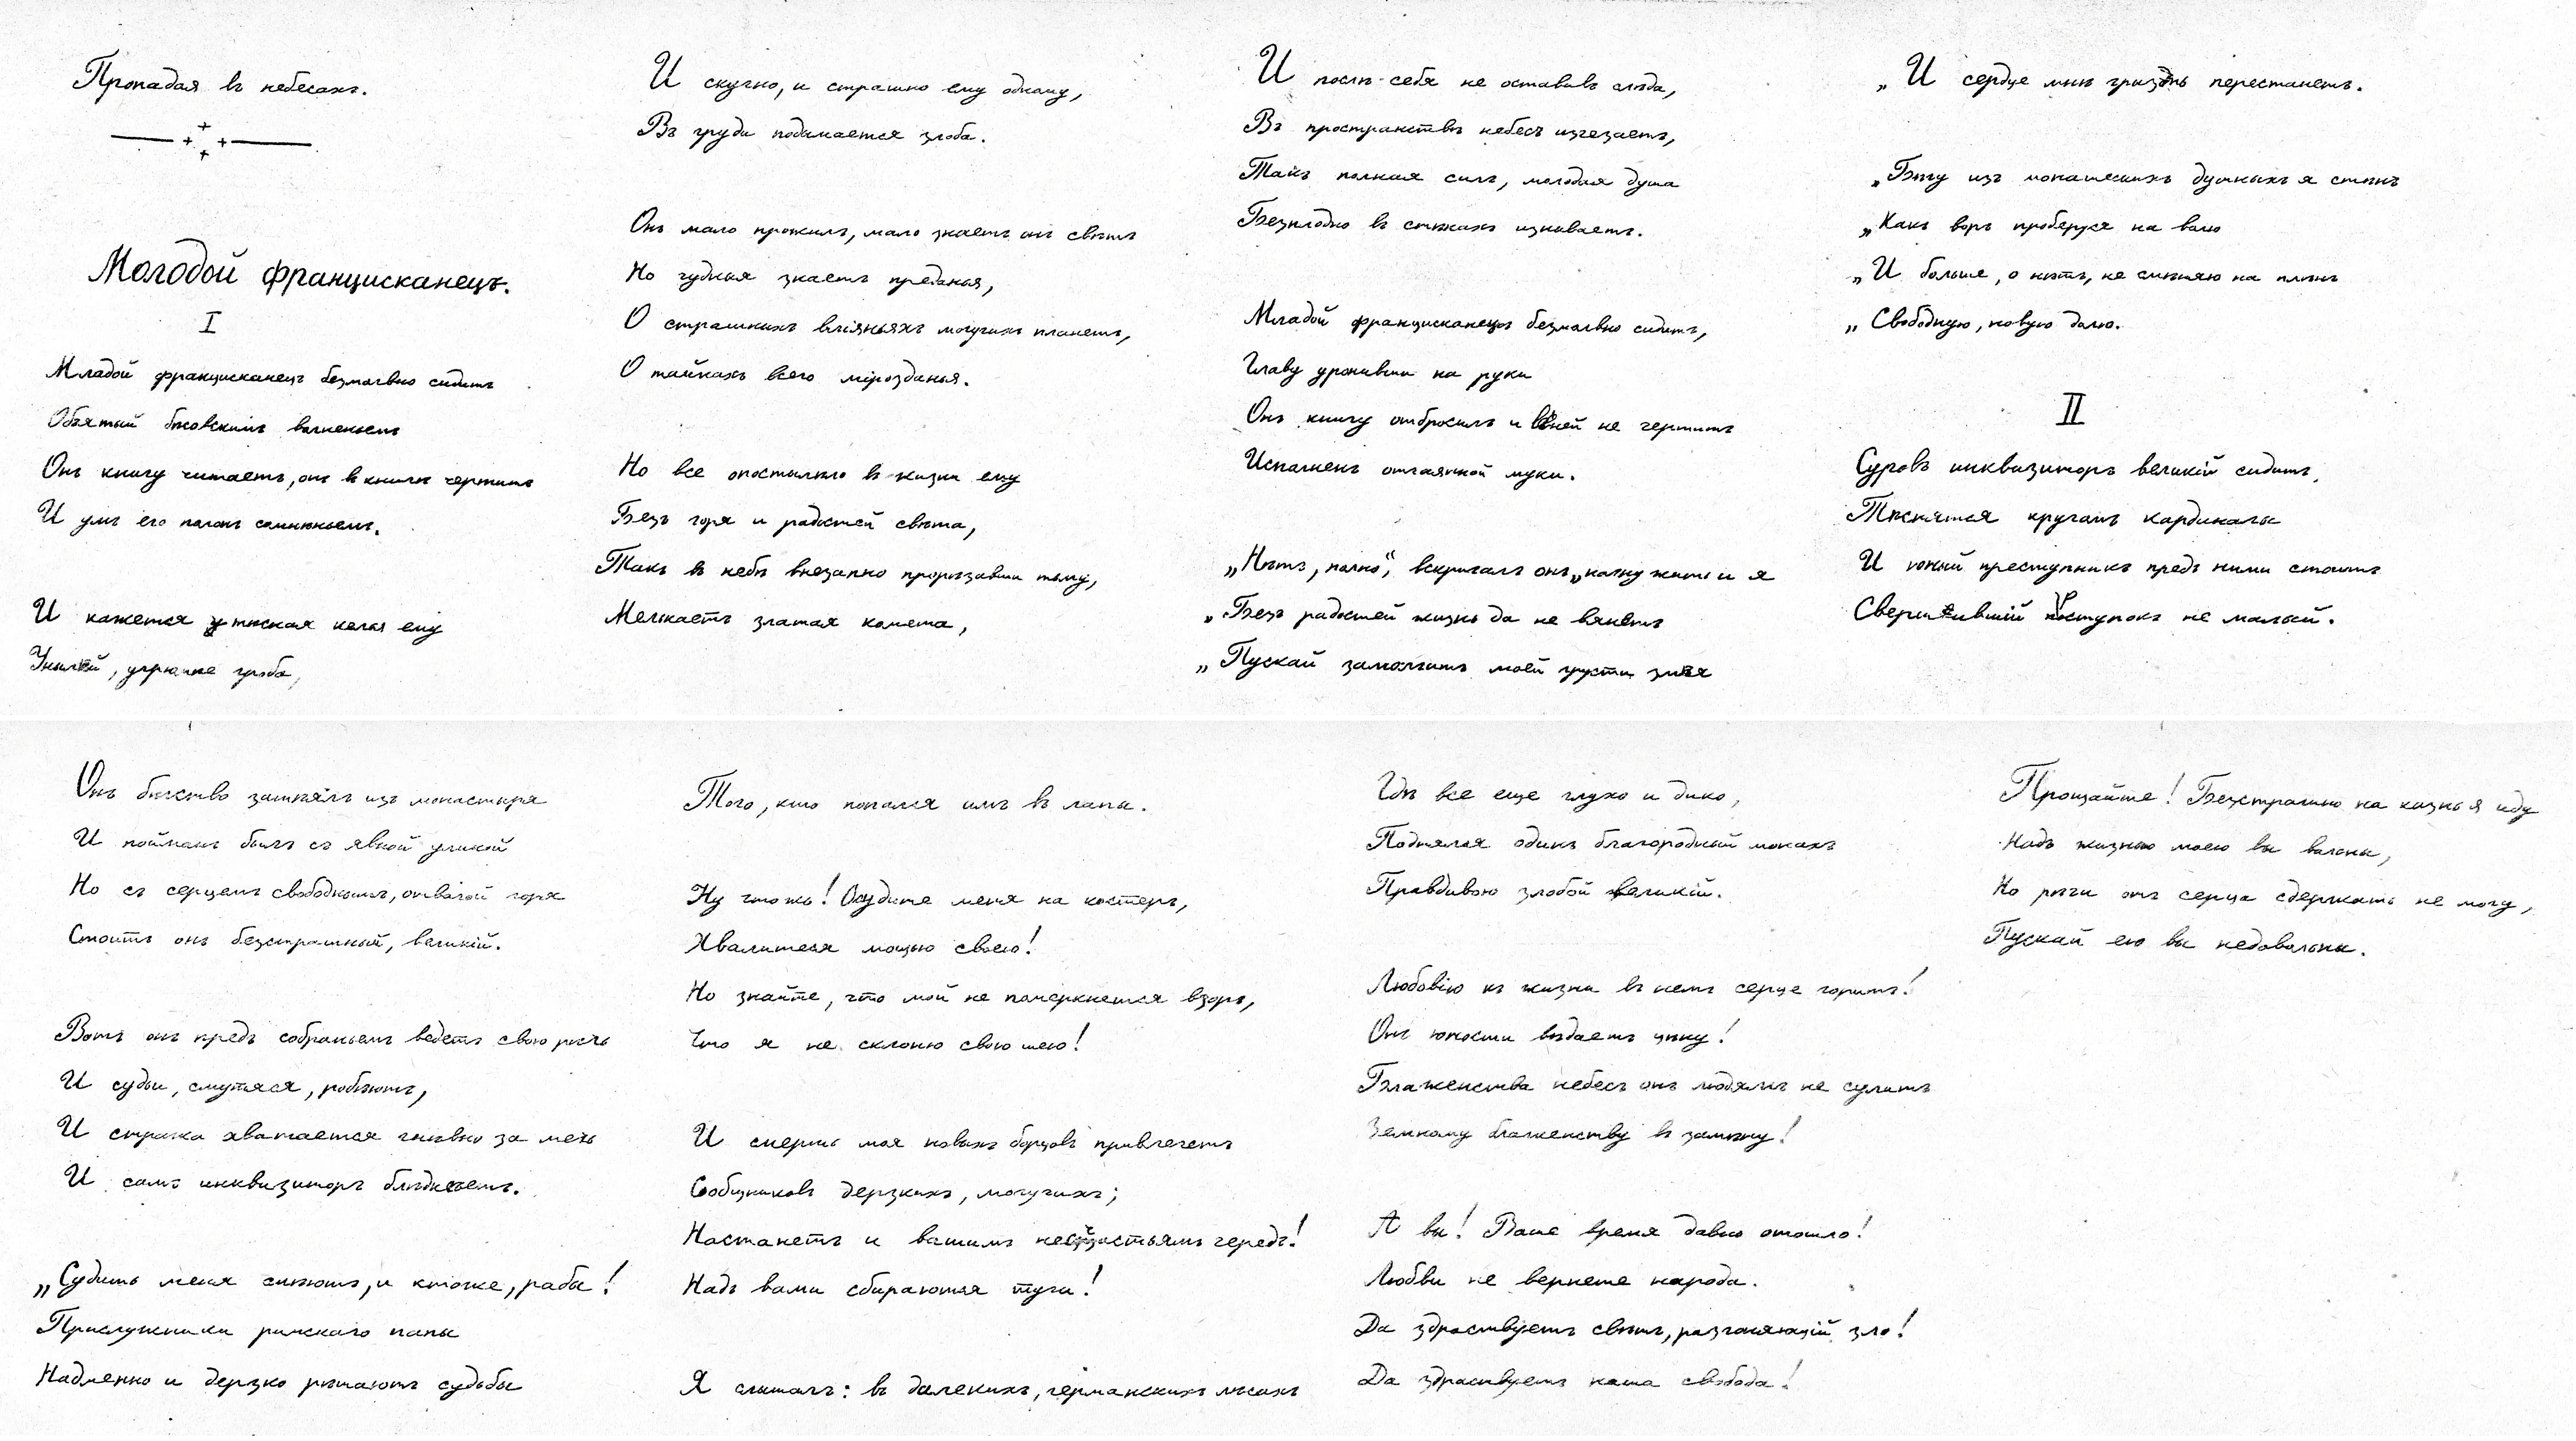 Пропадая въ небесахъ.
Молодой францисканецъ.
I
Младой францисканецъ безмолвно сидитъ
Объятый бѣсовскимъ волненьемъ
Онъ книгу читаетъ, онъ въ книгѣ чертитъ
И умъ его полонъ сомнѣньемъ.
И кажется тѣсная келья ему
Унылѣй, угрюмѣе гроба,
И скучно, и страшно ему одному,
Въ груди подымается злоба.
Онъ мало прожилъ, мало знаетъ онъ свѣтъ
Но чудныя знаетъ преданья,
О страшныхъ вліяньяхъ могучихъ планетъ,
О тайнахъ всего мірозданья.
Но все опостылѣло въ жизни ему
Безъ горя и радостей свѣта,
Такъ въ небѣ внезапно прорѣзавши тьму,
Мелькаетъ златая комета,
И послѣ себя не оставивъ слѣда,
Въ пространствѣ небесъ изчезаетъ,
Такъ полная силъ, молодая душа
Безплодно въ стѣнахъ изнываетъ.
Младой францисканецъ безмолвно сидитъ,
Главу уронивши на руки
Онъ книгу отбросилъ и въ ней не чертитъ
Исполненъ отчаянной муки.
„Нѣтъ, полно“, вскричалъ онъ „начну жить и я
„Безъ радостей жизнь да не вянетъ
„Пускай замолчитъ моей грусти змѣя
„И сердце мнѣ грызть перестанетъ.
„Бѣгу изъ монашескихъ душныхъ я стѣнъ
„Какъ воръ проберуся на волю
„И больше, о нѣтъ, не смѣняю на плѣнъ
„Свободную, новую долю.
II
Суровъ инквизиторъ великій сидитъ,
Тѣснятся кругомъ кардиналы
И юный преступникъ предъ ними стоитъ
Свершившій поступокъ не малый.
Онъ бѣгство затѣялъ изъ монастыря
И пойманъ былъ съ явной уликой
Но съ серцемъ свободнымъ, отвагой горя
Стоитъ онъ безстрашный, великій.
Вотъ онъ предъ собраньемъ ведетъ свою рѣчь
И судьи, смутяся, робѣютъ,
И стража хватается гнѣвно за мечь
И самъ инквизиторъ блѣднѣетъ.
„Судить меня смѣютъ, и ктоже, рабы!
Прислужники римскаго папы
Надменно и дерзко рѣшаютъ судьбы
Того, кто попался имъ въ лапы.
Ну чтожь! Осудите меня на костеръ,
Хвалитеся мощью своею!
Но знайте, что мой не померкнется взоръ,
Что я не склоню свою шею!
И смерть моя новыхъ борцовъ привлечетъ
Сообщниковъ дерзкихъ, могучихъ;
Настанетъ и вашимъ несчастьямъ чередъ!
Надъ вами сбираются тучи!
Я слышалъ: въ далекихъ, германскихъ лѣсахъ
Гдѣ все еще глухо и дико,
Поднялся одинъ благородный монахъ
Правдивою злобой великій.
Любовію къ жизни въ немъ серце горитъ!
Онъ юности вѣдаетъ цѣну!
Блаженства небесъ онъ людямъ не сулитъ
Земному блаженству въ замѣну!
А вы! Ваше время давно отошло!
Любви не вернете народа.
Да здраствуетъ свѣтъ, разгоняющій зло!
Да здраствуетъ наша свобода!
Прощайте! Безстрашно на казнь я иду
Надъ жизнью моею вы вольны,
Но рѣчи отъ серца сдержать не могу,
Пускай ею вы недовольны.